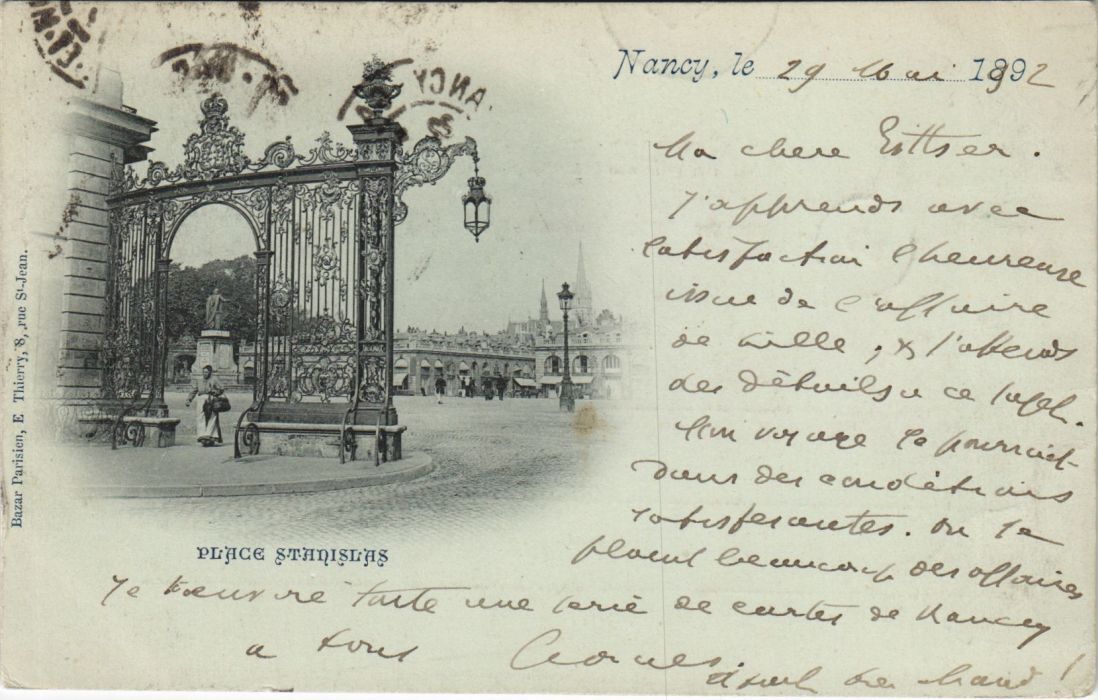 Nancy, le 29 Mai 1892
Ma chere Esther.
J'apprends avec
satisfaction l'heureuse
issue de l'affaire
de Lille, & j'attends
des détails a ce sujet.
Mon voyage se poursuit
dans des conditions
satisfaisantes. On se
plaint beaucoup des affaires
Je t'envoie toute une serie de cartes de Nancy
a tous
Il fait bien chaud !
PLACE STANISLAS
Bazar Parisien, E Thierry, 8, rue St-Jean.
NANCY